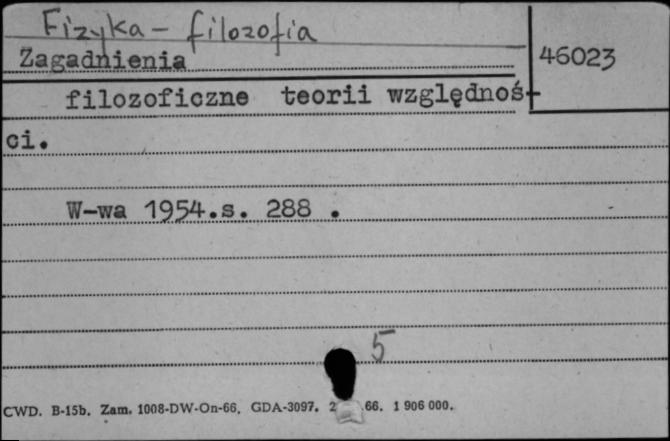 Fizyka - filozofia
Zagadnienia
46023
filozoficzne teorii względnoś-
ci.
W-wa 1954.s. 288 .
5
CWD. B-15b. Zam. 1008-DW-On-66. GDA-3097. 2 66. 1 906 000.